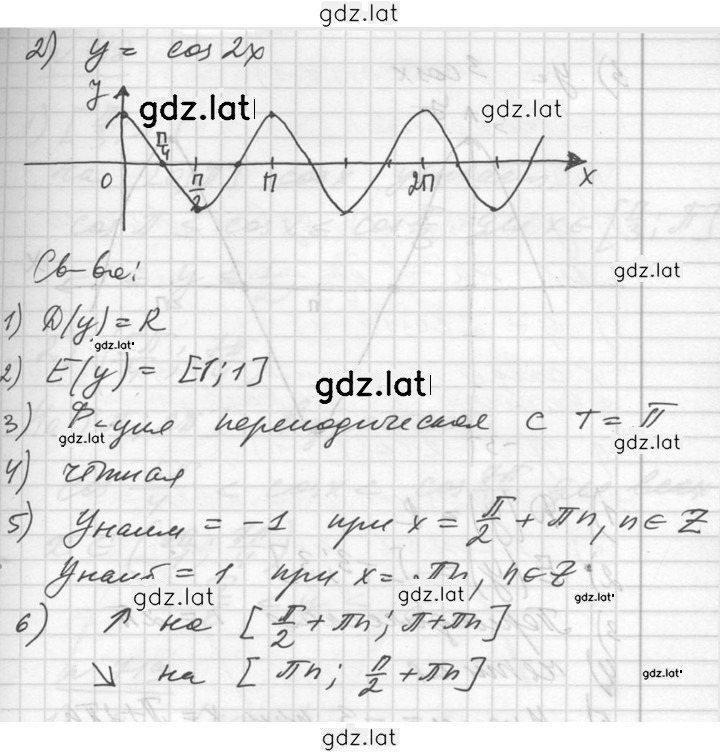 gdz.lat
2) y = cos 2x
y
gdz.lat
gdz.lat
π/4
0
π/2
π
2π
x
Св-ва:
gdz.lat
1) D(y) = R
gdz.lat
2) E(y) = [-1; 1]
gdz.lat
3) Ф-ция периодическая с T = π
gdz.lat
gdz.lat
4) чётная
5) Yнаим = -1 при x = π/2 + πn, n ∈ Z
Yнаиб = 1 при x = πn, n ∈ Z
gdz.lat
gdz.lat
gdz.lat
6) ↑ на [π/2 + πn; π + πn]
↘ на [πn; π/2 + πn]
gdz.lat
gdz.lat